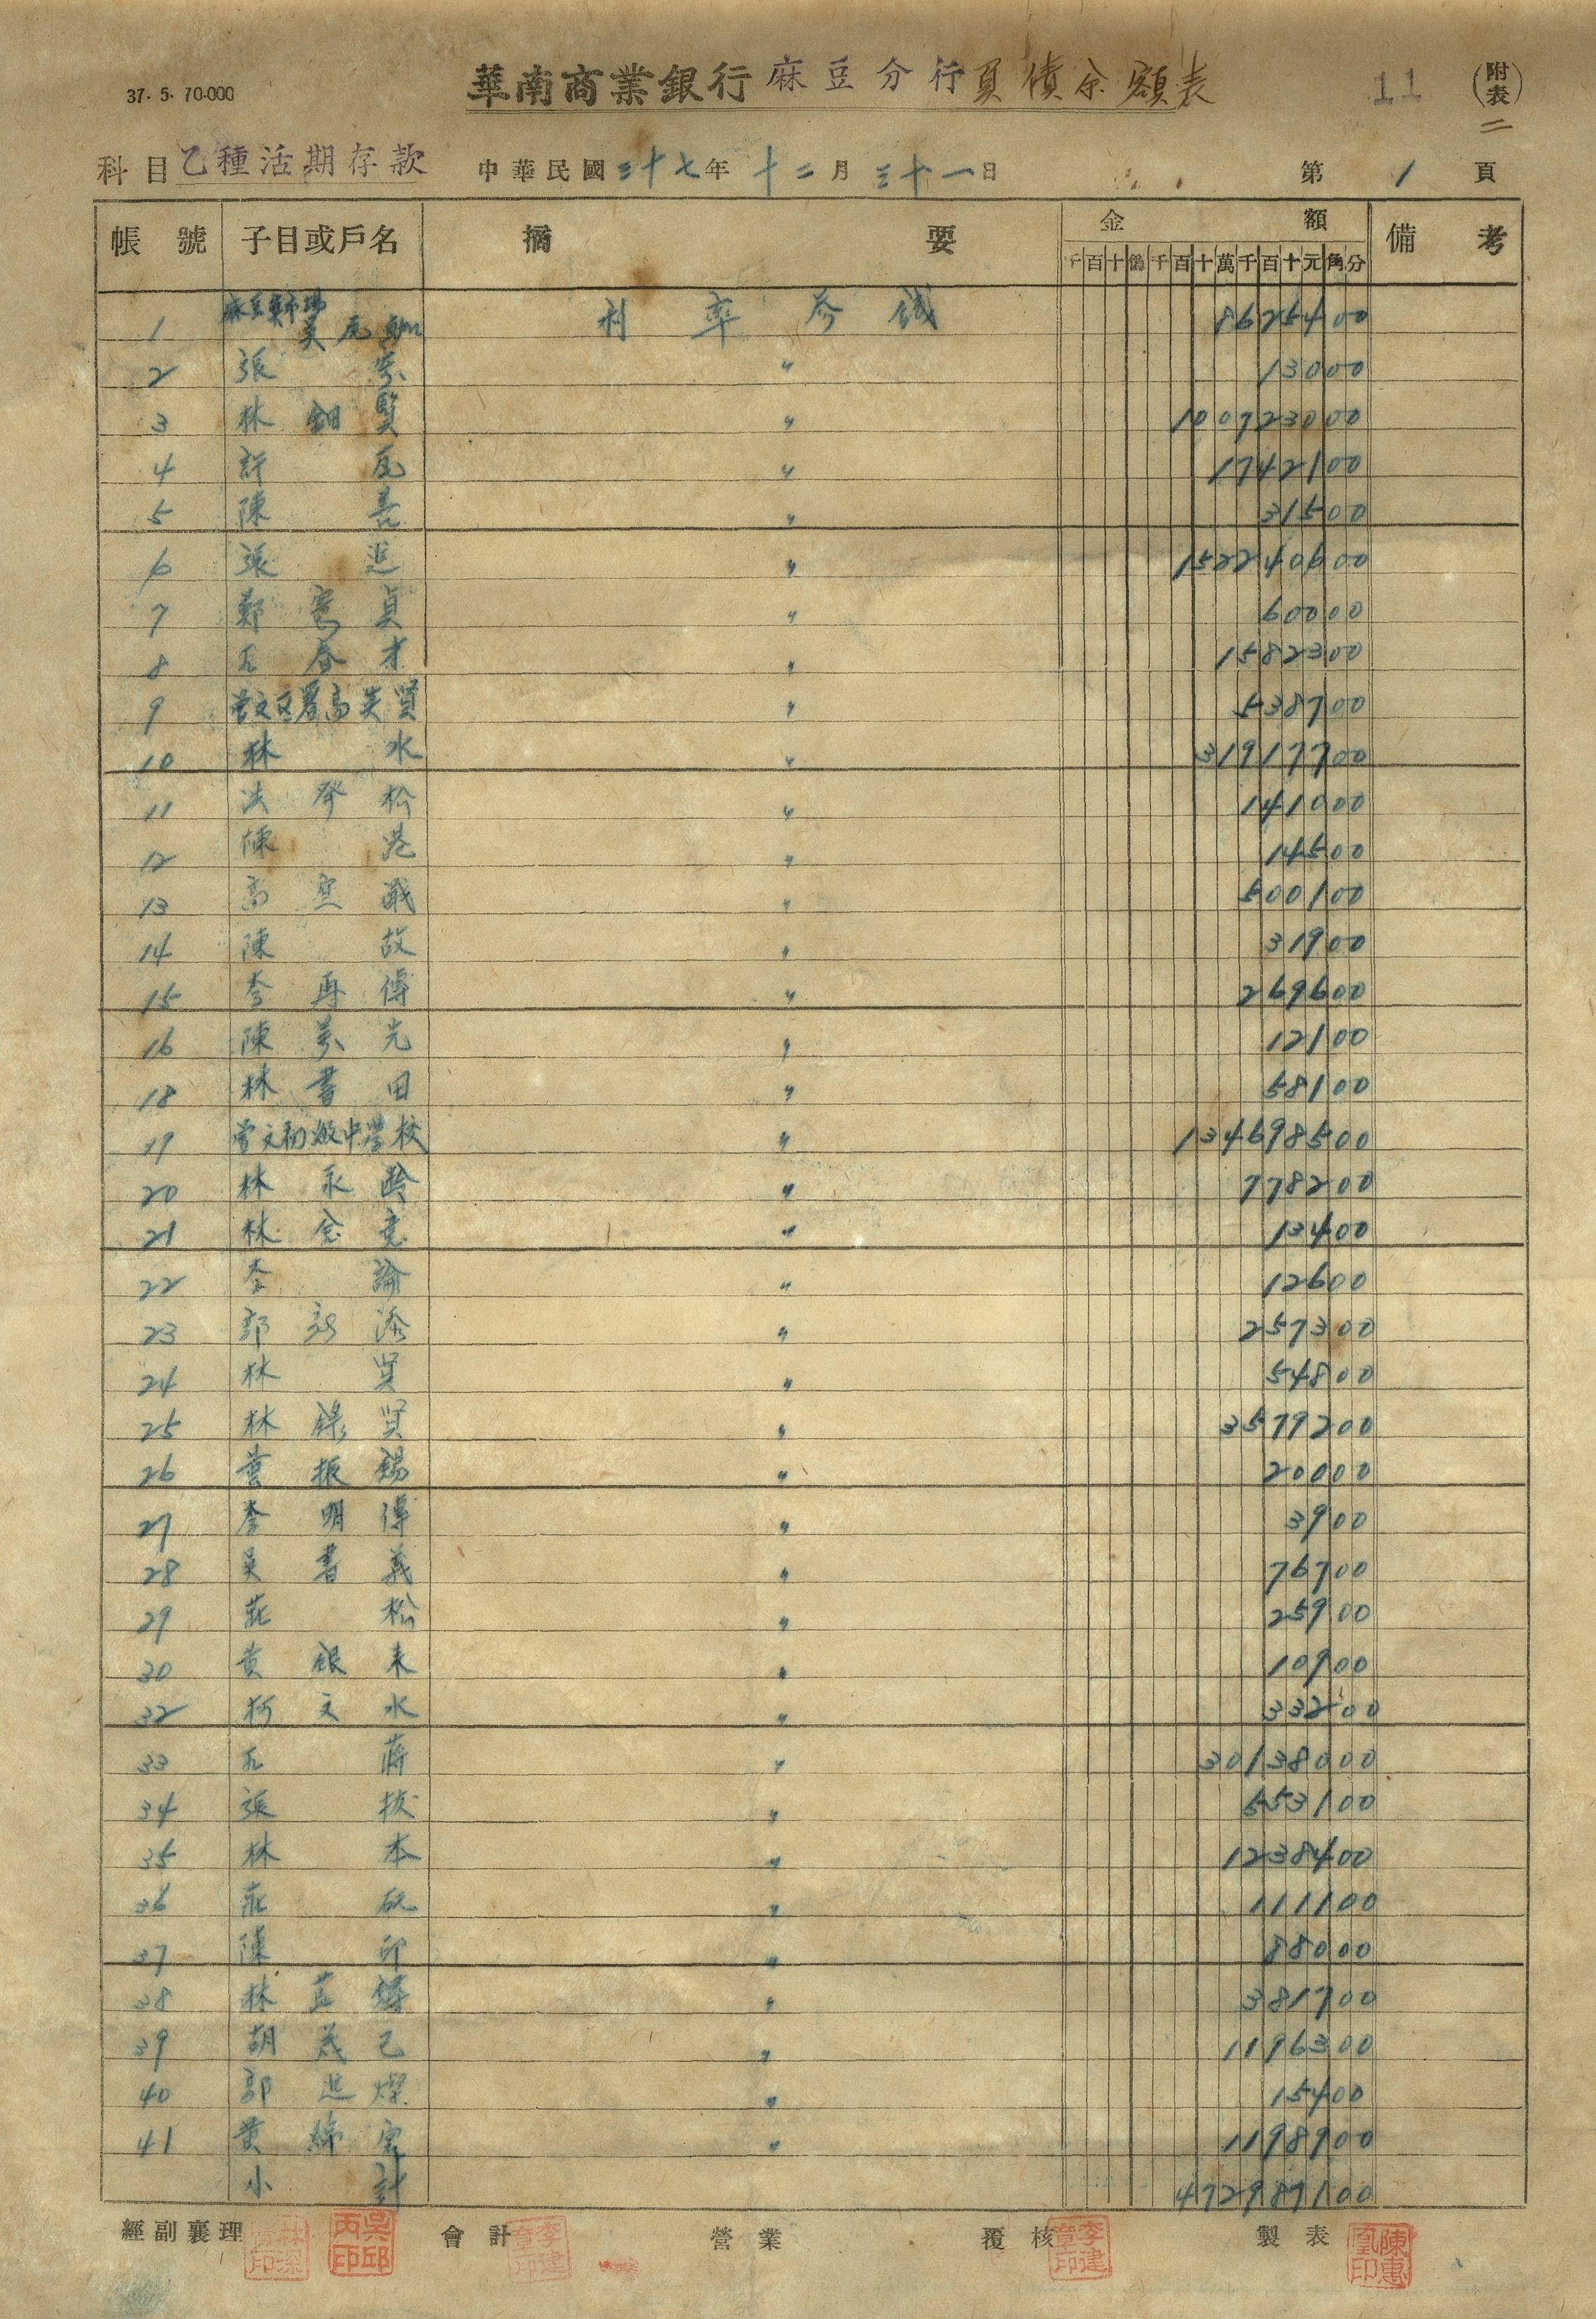 37. 5. 70.000
華南商業銀行 麻豆分行 負債余額表
11
(附表)二
科目 乙種活期存款 中華民國三十七年十二月三十一日 第1頁
帳號 子目或戶名 摘要 金額 備考
千百十億千百十萬千百十元角分
1 利率參錢 8625400
2 張 〃 13000
3 林 賢 〃 100923000
4 許 瓦 〃 1742100
5 陳 善 〃 31500
6 張 進 〃 152240600
7 鄭 貞 〃 60000
8 春才 〃 1582300
9 曾文区署高 賢 〃 538700
10 林水 〃 31917700
11 洪登松 〃 141000
12 陳港 〃 14500
13 高 〃 500100
14 陳故 〃 31900
15 李再傳 〃 269600
16 陳萬光 〃 12100
18 林書田 〃 58100
19 曾文初級中學校 〃 134698500
20 林永齡 〃 778200
21 林金 〃 13400
22 李諭 〃 12600
23 郭 添 〃 257300
24 林 〃 54800
25 林錄賢 〃 3579200
26 葉振錫 〃 20000
27 李明傳 〃 3900
28 吳書義 〃 76700
29 莊松 〃 25900
30 黃銀來 〃 10900
32 柯文水 〃 33200
33 蔣 〃 30138000
34 張拔 〃 553100
35 林本 〃 1238400
36 莊 〃 111100
37 陳印 〃 88000
38 林 〃 381700
39 胡茂己 〃 1196300
40 郭進燦 〃 15400
41 黃綿 〃 1198900
小計 472987100
經副襄理 會計 營業 覆核 製表
林深 印
吳邱丙印
李建章印
李建章印
陳惠凰印